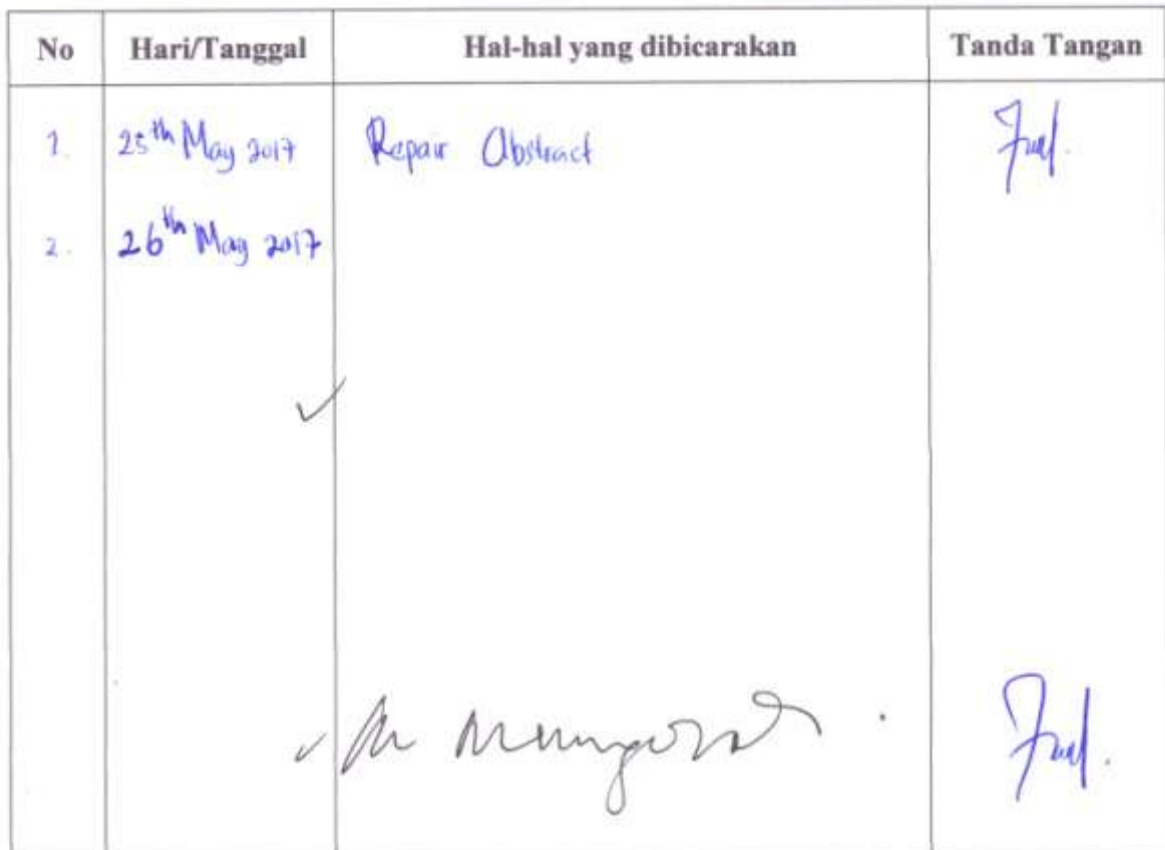 No Hari/Tanggal Hal-hal yang dibicarakan Tanda Tangan
1. 25th May 2017 Repair Abstract
2. 26th May 2017